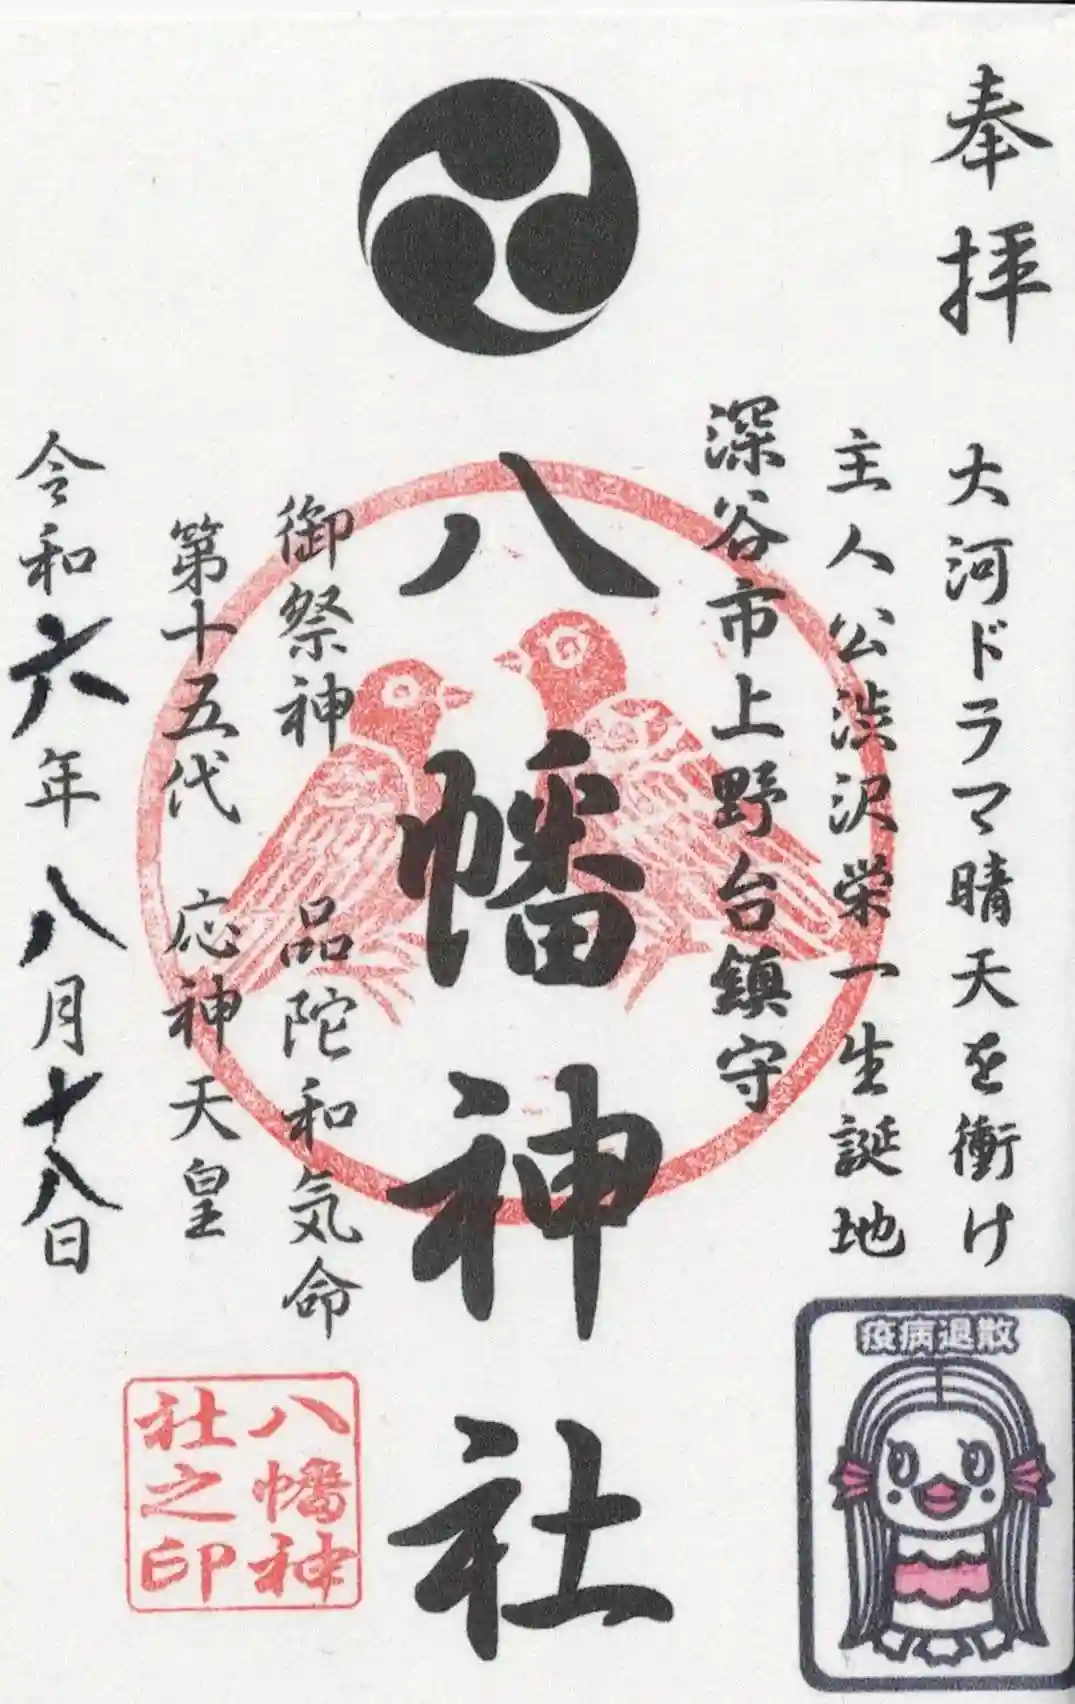 奉拝
大河ドラマ晴天を衝け
主人公渋沢栄一生誕地
深谷市上野台鎮守
八幡神社
御祭神 品陀和気命
第十五代 応神天皇
令和六年八月十八日
疫病退散
八幡神
社之印